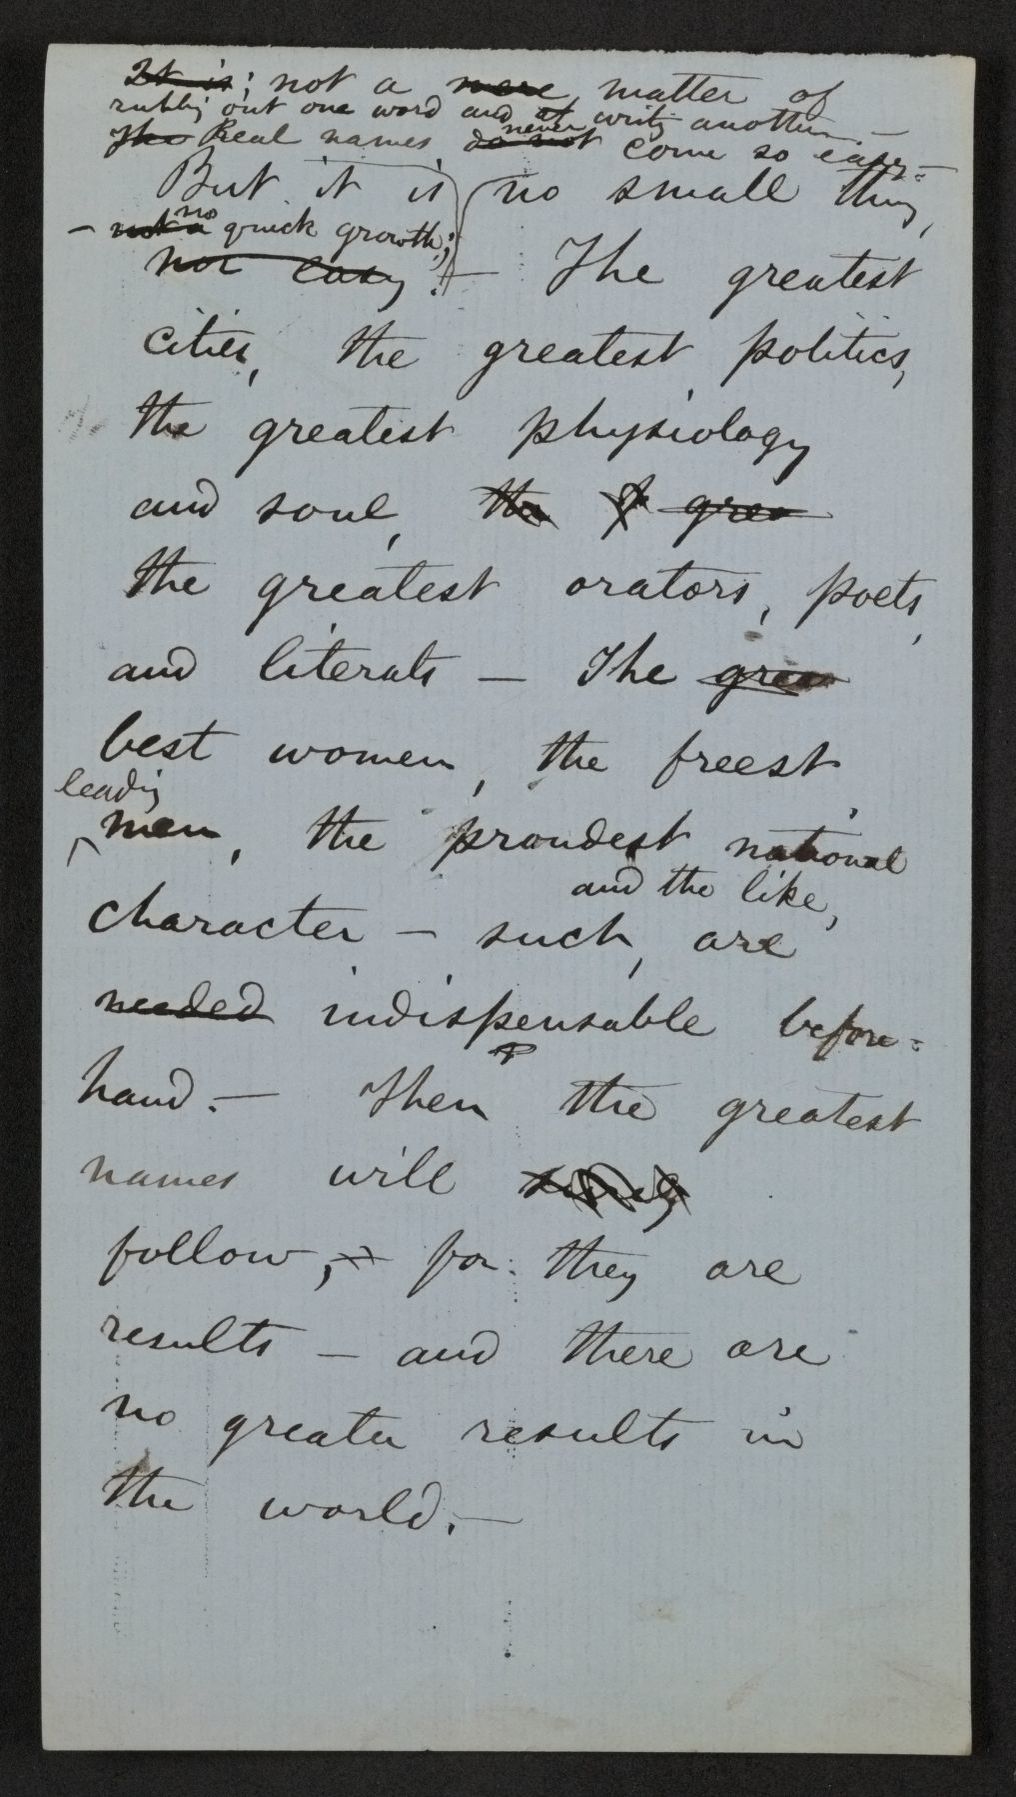 It is; not a mere matter of
rubbing out one word and writing another —
The Real names do not never come so easy =
But it is no small thing,
— not a no quick growth;
nor easy. — The greatest
cities, the greatest politics,
the greatest physiology
and soul, the grea
the greatest orators, poets,
and literats — The grea
best women, the freest,
leading
men, the proudest national
and the like,
character — such, are
needed indispensable before =
hand. — Then the greatest
names will
follow, for they are
results — and there are
no greater results in
the world. —